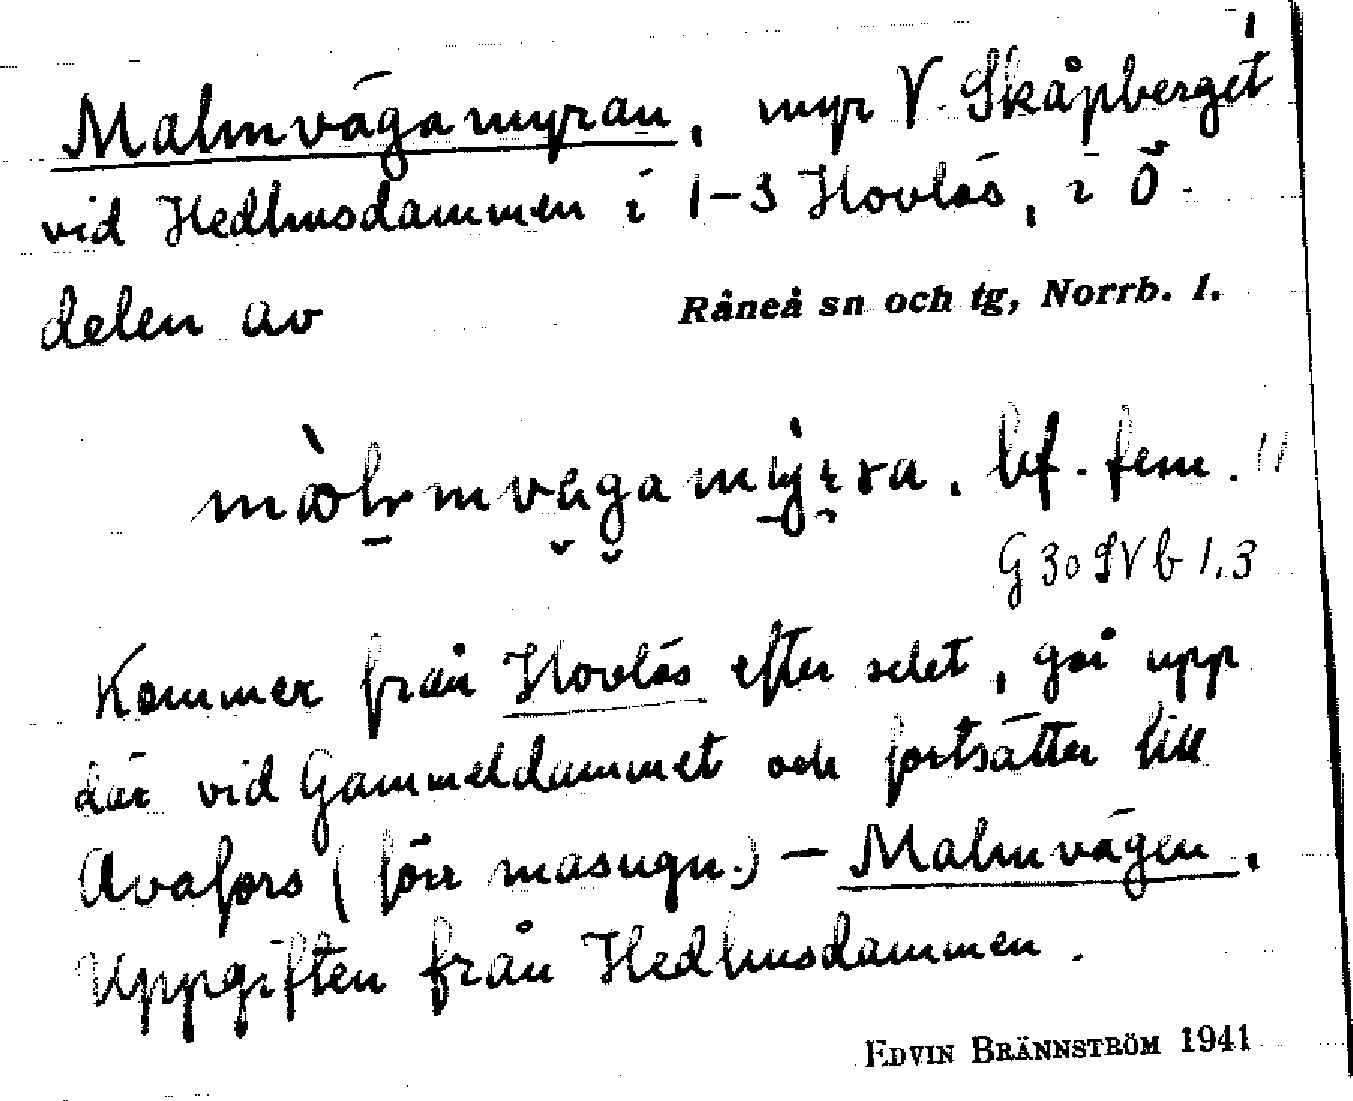 Malmvägamyran, myr V Skåpberget
vid Hedhusdammen i 1-3 Hovlös, i Ö
delen av Råneå sn och tg, Norrb. l.
bf. fem. 11
G 30 SV b 1.3
Kommer från Hovlös efter selet, går upp
där vid Gammeldammet och fortsätter till
Avafors (förr masugn.) – Malmvägen.
Uppgiften från Hedhusdammen.
EDVIN BRÄNNSTRÖM 1941